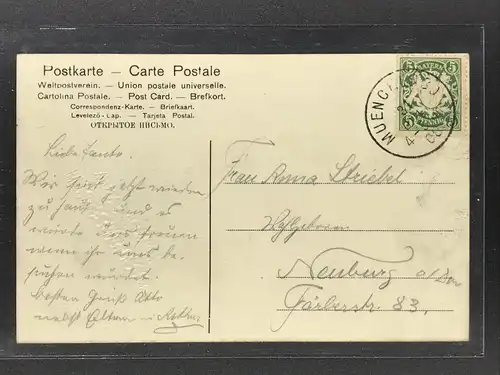 Postkarte — Carte Postale
Weltpostverein. — Union postale universelle.
Cartolina Postale. — Post Card. — Brefkort.
Correspondenz-Karte. — Briefkaart.
Levelező-Lap. — Tarjeta Postal.
ОТКРЫТОЕ ПИСЬМО.
BAYERN
5 5
PFENNIG
MUENCHEN
Liebe Tante.
Wir sind jetzt wieder
zu Haus und es
würde uns freuen
wenn ihr uns be-
suchen würdet.
besten Gruß Otto
nebst Eltern u.
Frau Anna Striebel
Neuburg a/Don
Färberstr. 83.